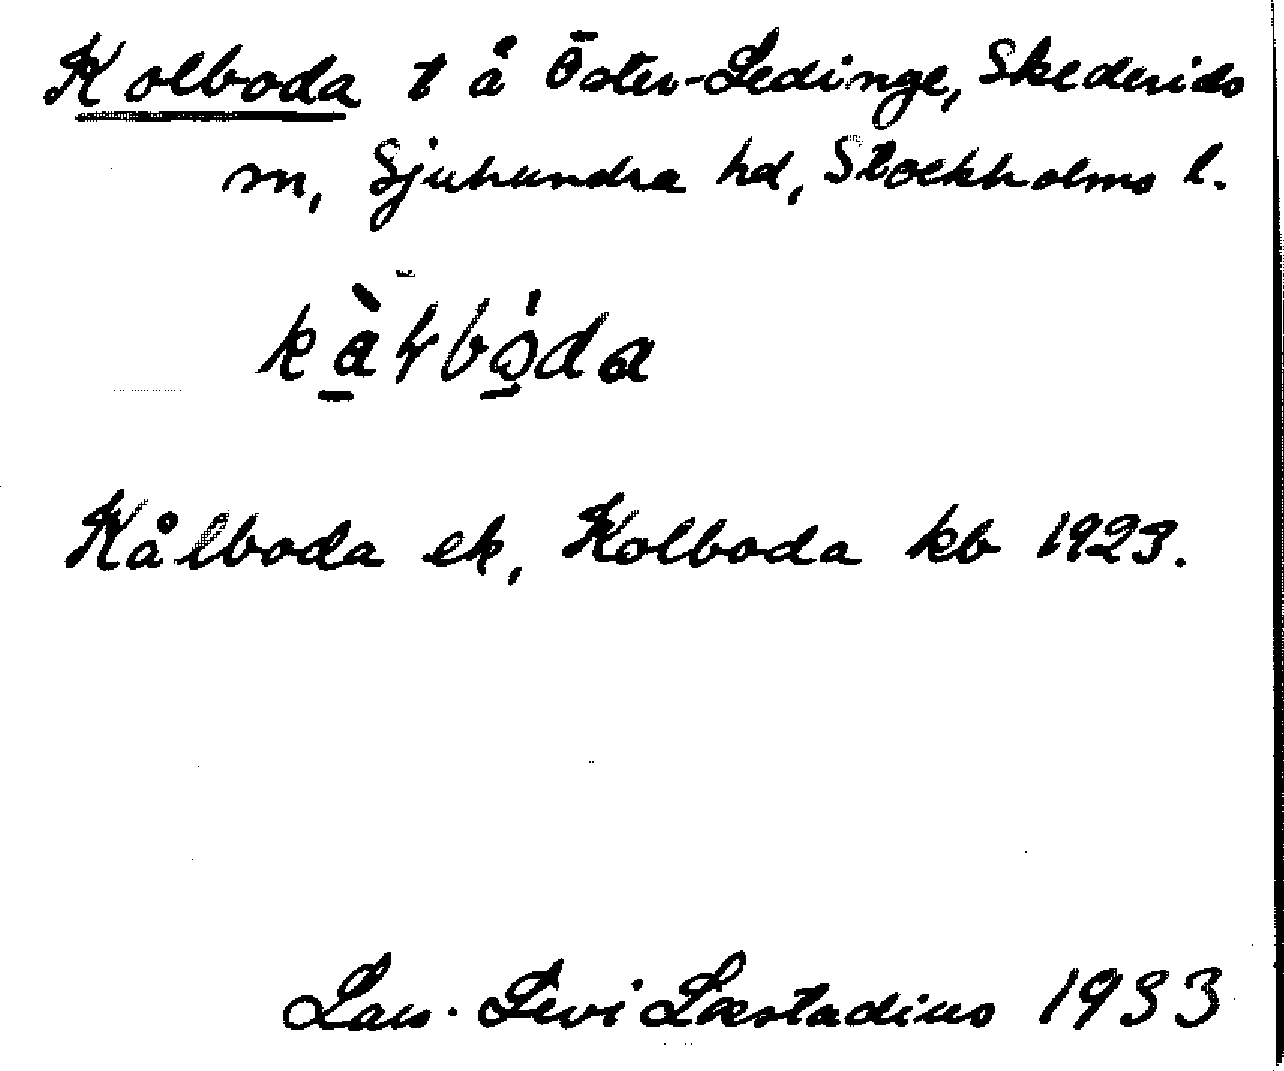 Kolboda t å Öster-Ledinge, Skederids
sn, Sjuhundra hd, Stockholms l.
kàḷbóda
Kålboda ek, Kolboda kb 1923.
Lars-Levi Læstadius 1933